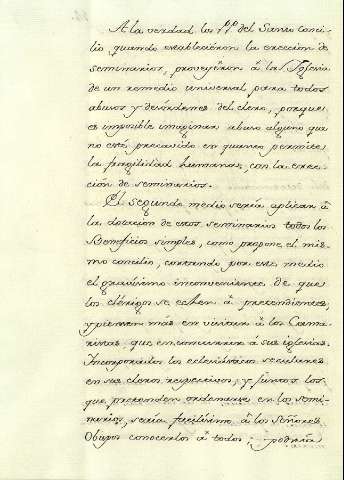 A la verdad los PP. del Santo Conci-
lio, quando establecieron la ereccion de
seminarios, proveyeron á la Iglesia
de un remedio universal para todos
abusos y desórdenes del clero, porque
es imposible imaginar abuso alguno que
no esté precavido en quanto permite
la fragilidad humana, con la erec-
ción de seminarios.
El segundo medio seria aplicar á
la dotacion de estos seminarios todos los
Beneficios simples, como propone el mis-
mo concilio, cortando por este medio
el gravísimo inconveniente de que
los clérigos se echen á pretendientes,
y piensen más en visitar á los Cama-
ristas, que en concurrir á sus iglesias.
Incorporados los eclesiásticos seculares
en sus cleros respectivos, y juntos los
que pretenden ordenarse en los semi-
narios, seria facilísimo á los Señores
Obispos conocerlos á todos; podrian